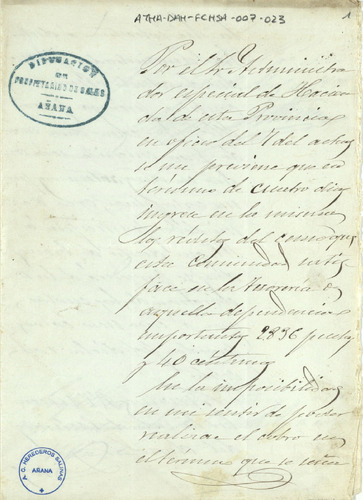 ATHA-DAH-FCHSA-007-023
1
DIPUTACION
DE
PROPIETARIOS DE SALES
AÑANA
Por el Sr. Administra
dor especial de Hacien
da de esta Provincia
en oficio del 7 del actual
se me previene que en
término de cuatro dias
ingrese en la misma
los réditos del censo que
esta comunidad satis
face en la Tesoreria de
aquella dependencia
importantes 2836 pesetas
y 40 céntimos
En la imposibilidad
en mi sentir de poder
realizar el cobro en
el término que se
A. C. HEREDEROS SALINAS
AÑANA